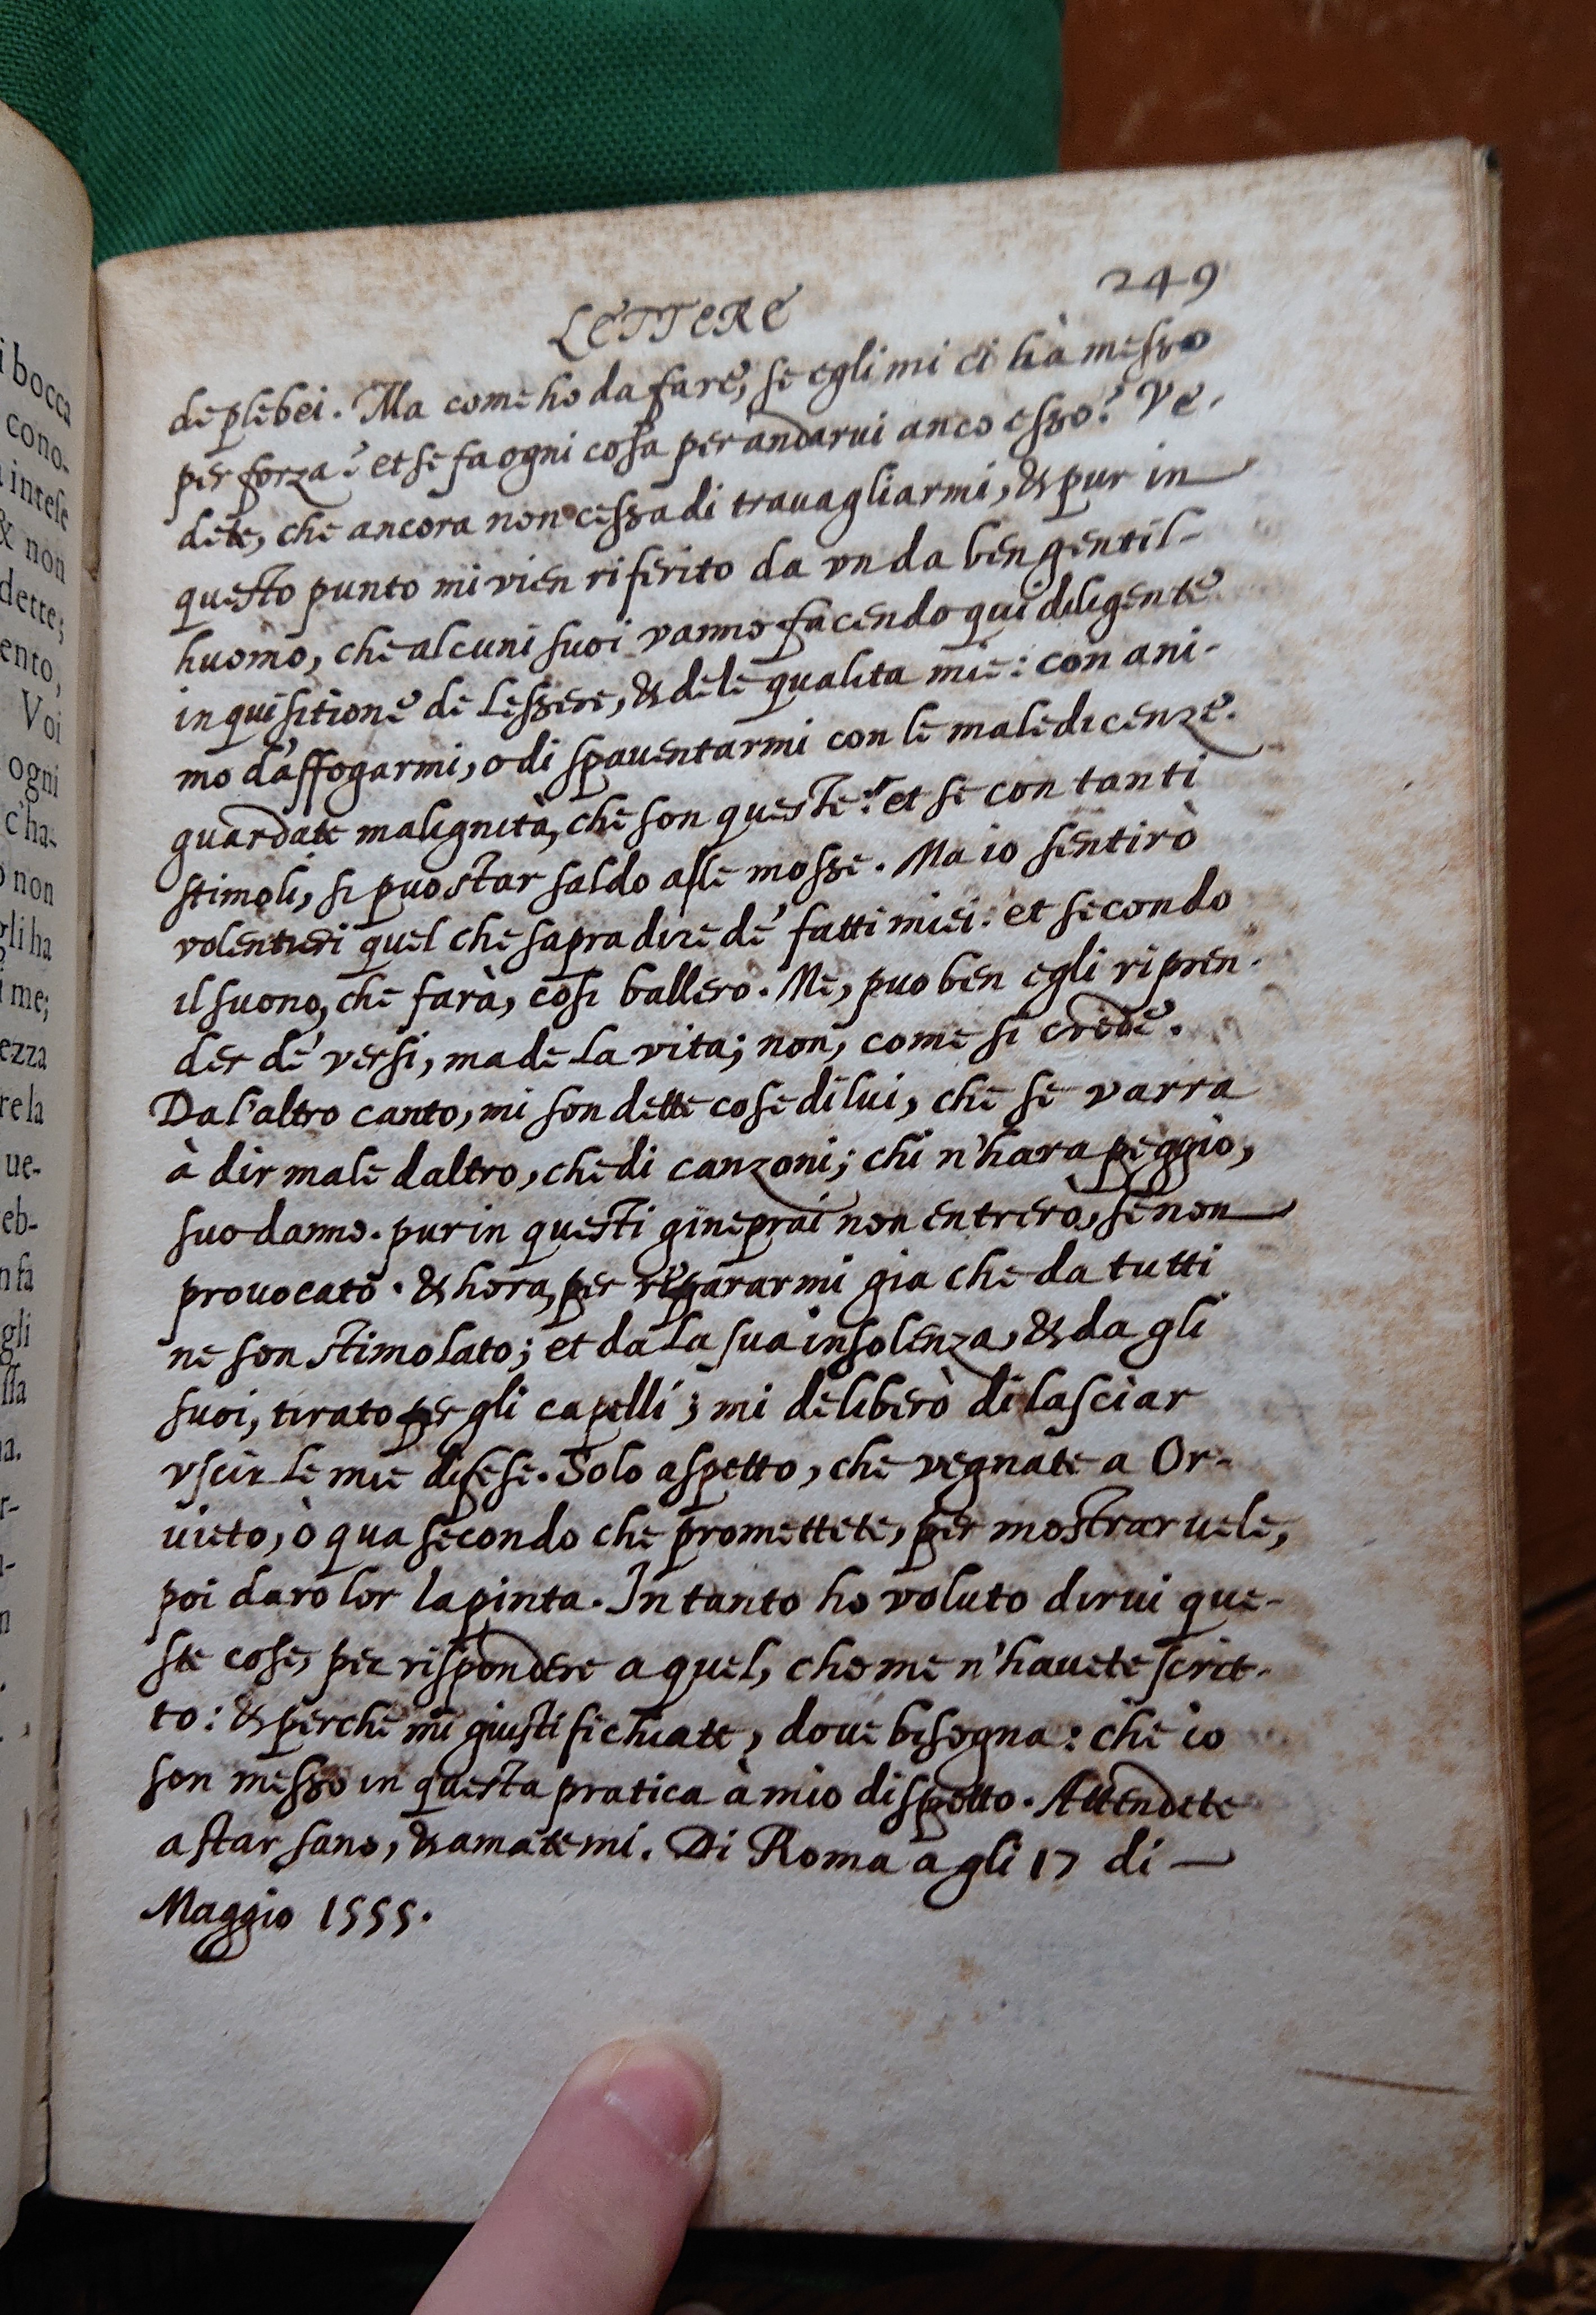 i bocca
cono-
intese
& non
dette;
ento,
Voi
ogni
c'ha-
non
gli ha
me;
ezza
re la
ue-
eb-
gli
LETTERE
249
de plebei. Ma come ho da fare, se egli mi ci hà messo
per forza? et se fa ogni cosa per andarui anco esso? Ve-
dete, che ancora non cessa di trauagliarmi, & pur in
questo punto mi vien riferito da vn da ben gentil-
huomo, che alcuni suoi vanno facendo qui diligente
inquisitione de lessere, & dele qualita mie: con ani-
mo d'affogarmi, o di spauentarmi con le maledicenze.
guardate malignità, che son queste? et se con tanti
stimoli, si puo star saldo alle mosse. Ma io sentirò
volentieri quel che sapra dire de' fatti miei: et secondo
il suono, che farà, cosi ballero. Me, puo ben egli ripren-
der de' versi, ma de la vita; non, come si crede.
Da l'altro canto, mi son dette cose di lui, che se varra
à dir male daltro, che di canzoni; chi n'hara peggio,
suo danno. pur in questi gineprai non entrerò, se non
prouocato. & hora, per repararmi gia che da tutti
ne son stimolato; et da la sua insolenza, & da gli
suoi, tirato per gli capelli; mi deliberò di lasciar
vscir le mie difese. Solo aspetto, che vegnate a Or-
uieto, ò qua secondo che promettete, per mostraruele,
poi daro lor la pinta. In tanto ho voluto dirui que-
ste cose, per rispondere a quel, che me n'hauete scrit-
to: & perche mi giustifichiate, doue bisogna: che io
son messo in questa pratica à mio dispetto. Attendete
a star sano, & amatemi. Di Roma a gli 17 di
Maggio 1555.